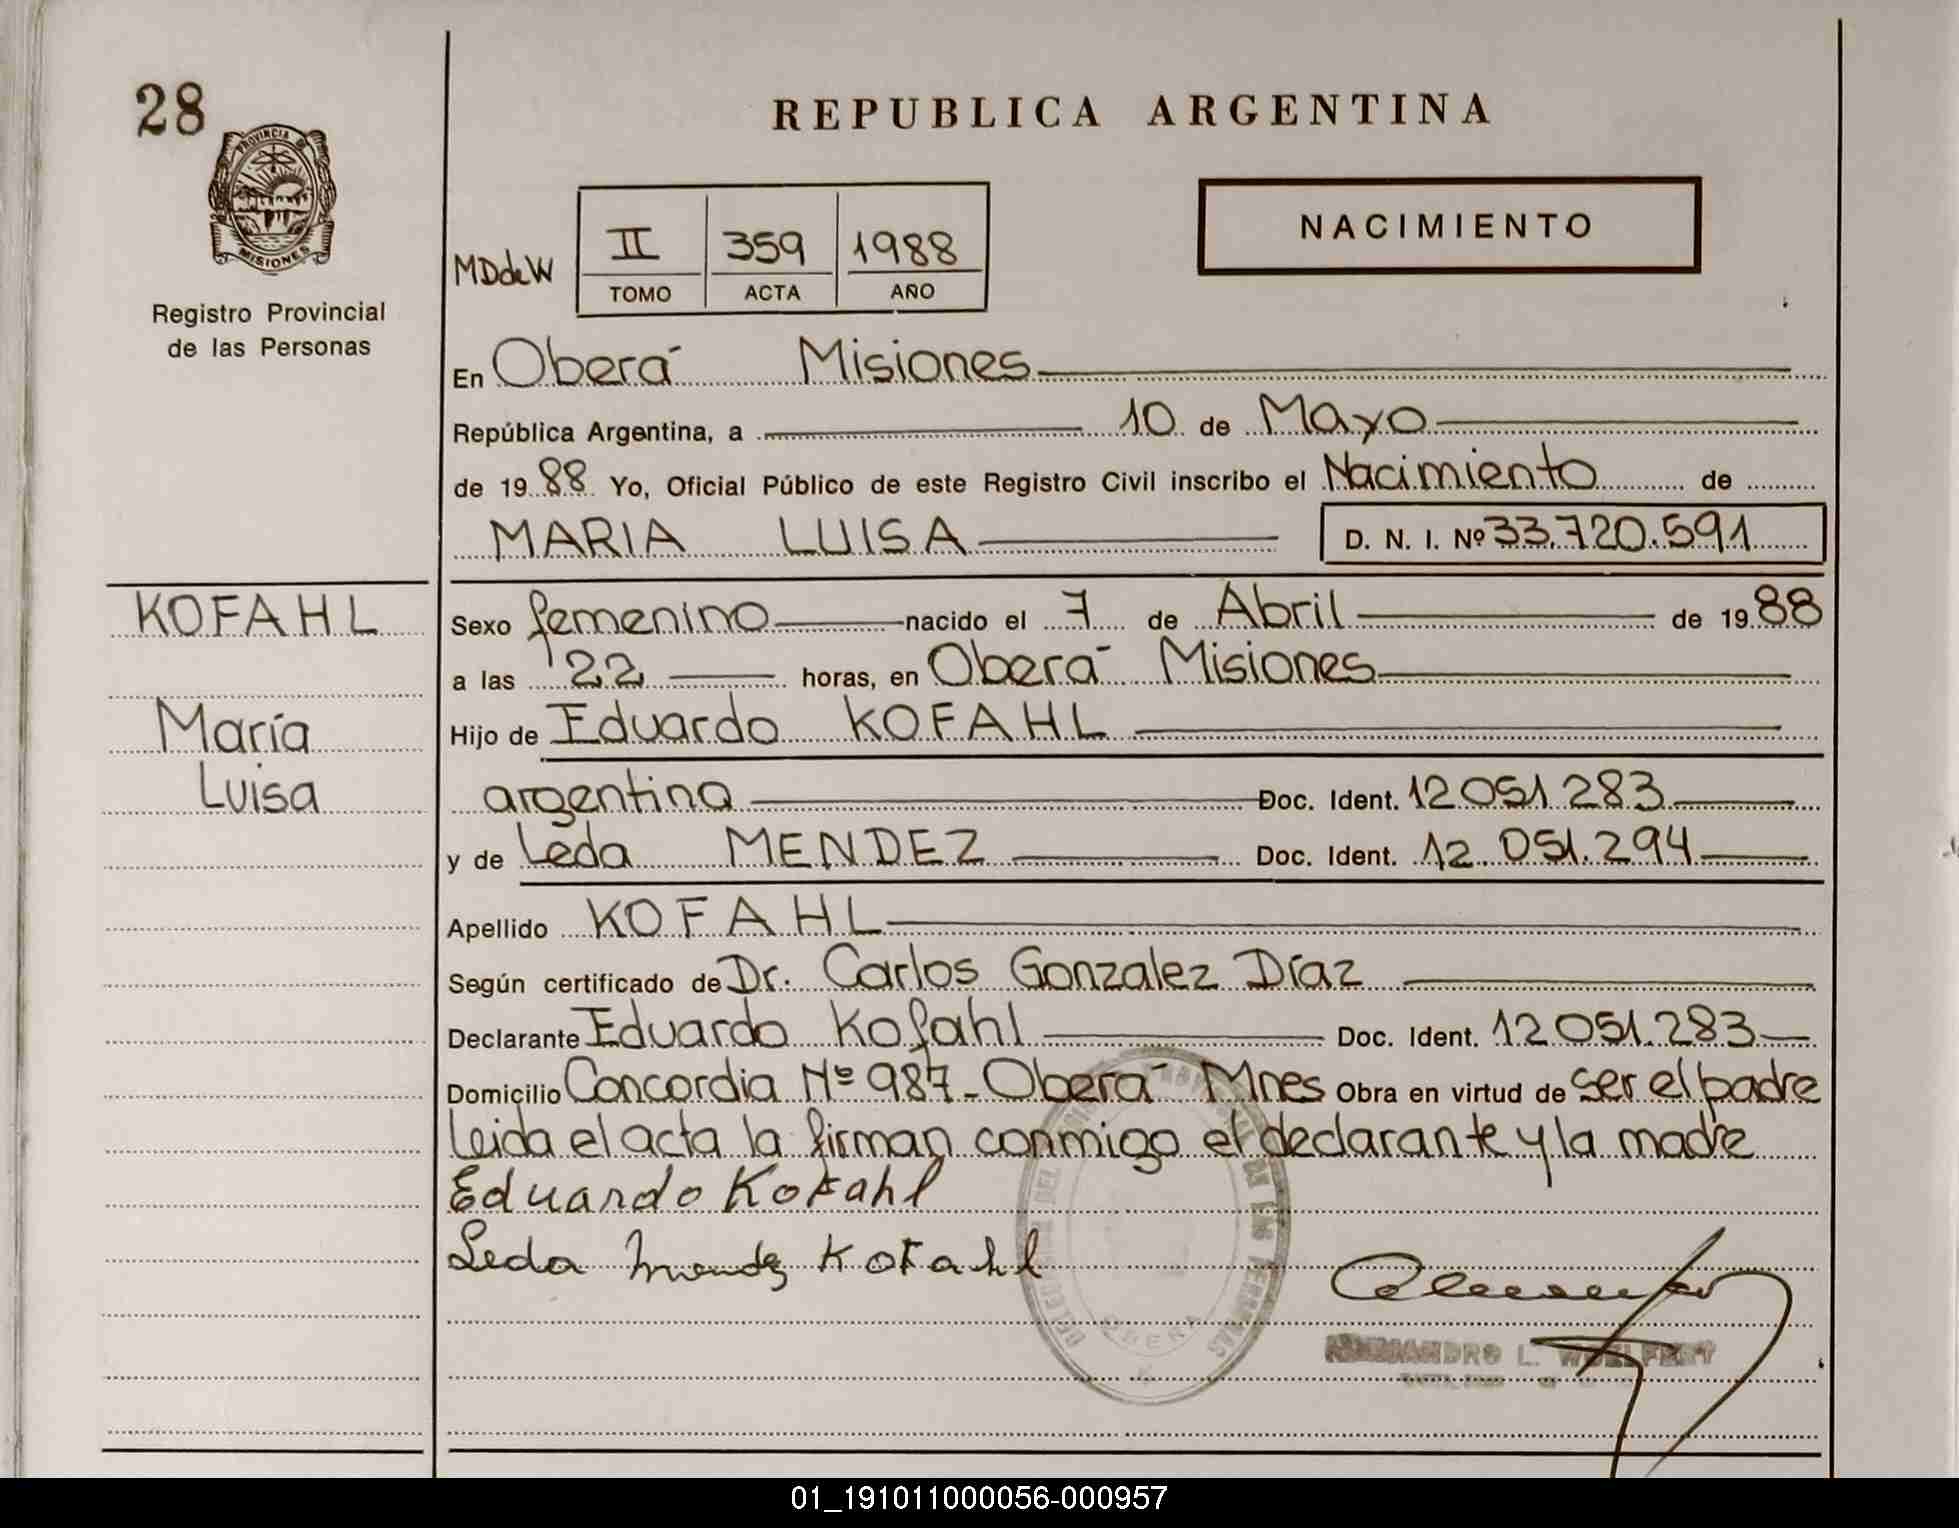 28
PROVINCIA DE
MISIONES
Registro Provincial
de las Personas
REPUBLICA ARGENTINA
NACIMIENTO
MDdeW
II 359 1988
TOMO ACTA AÑO
En Oberá Misiones
República Argentina, a 10 de Mayo
de 1988 Yo, Oficial Público de este Registro Civil inscribo el Nacimiento de
MARIA LUISA D. N. I. Nº 33.720.591
KOFAHL
María
Luisa
Sexo femenino nacido el 7 de Abril de 1988
a las 22 horas, en Oberá Misiones
Hijo de Eduardo KOFAHL
argentina Doc. Ident. 12051283
y de Leda MENDEZ Doc. Ident. 12.051.294
Apellido KOFAHL
Según certificado de Dr. Carlos Gonzalez Díaz
Declarante Eduardo Kofahl Doc. Ident. 12051.283
Domicilio Concordia Nº 987- Oberá Mnes Obra en virtud de ser el padre
Leida el acta la firman conmigo el declarante y la madre
Eduardo Kofahl
Leda Mendez Kofahl
DE LAS PERSONAS
OBERA
L. WOELFERT
01_191011000056-000957